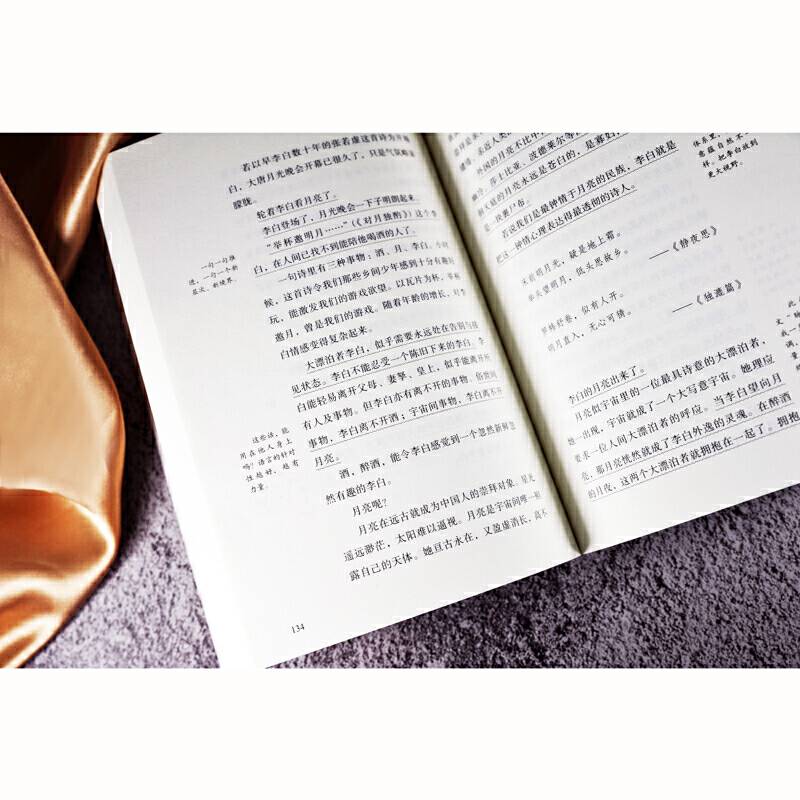 若以早李白数十年的张若虚这首诗为开端
白,大唐月光晚会开幕已很久了,只是气氛略显
朦胧。
轮着李白看月亮了。
李白登场了,月光晚会一下子明朗起来
“举杯邀明月……”(《对月独酌》)这个李
白,在人间已找不到能陪他喝酒的人了。
一句诗里有三种事物:酒、月、李白。小时
候,这首诗令我们那些乡间少年感到十分有趣好
玩,能激发我们的游戏欲望。以瓦片为杯,举杯
邀月,曾是我们的游戏。随着年龄的增长,对李
白情感变得复杂起来。
大漂泊者李白,似乎需要永远处在告别与相
见状态。李白不能忍受一个陈旧下来的李白。李
白能轻易离开父母、妻孥、皇上,似乎能离开所
有人及事物。但李白亦有离不开的事物。俗世间
事物,李白离不开酒;宇宙间事物,李白离不开
月亮。
酒,醉酒,能令李白感觉到一个忽然新鲜忽
然有趣的李白。
月亮呢?
月亮在远古就成为中国人的崇拜对象。星光
遥远渺茫,太阳难以逼视。月亮是宇宙间唯一袒
露自己的天体。她亘古永在,又盈虚消长,高不
一句一句推
进,一句一个新
层次、新境界。
这些话,能
用在他人身上
吗?语言的针对
性越好,越有
力量。
134
外国的月亮不比中
幽冷。莎士比亚、波德莱尔等
则天底的月亮永远是苍白的,是寡妇,
是一块裹尸布。
若说我们是最钟情于月亮的民族,李白就是
把这一种情心理表达得最透彻的诗人。
床前明月光,疑是地上霜。
举头望明月,低头思故乡。
——《静夜思》
罗帏舒卷,似有人开。
明月直入,无心可猜。
——《独漉篇》
李白的月亮出来了。
月亮似宇宙里的一位最具诗意的大漂泊者,
她一出现,宇宙就成了一个大写意宇宙。她理应
要求一位人间大漂泊者的呼应。当李白望向月
亮,那月亮恍然就成了李白外逸的灵魂。在醉酒
的月夜,这两个大漂泊者就拥抱在一起了。拥抱
体系里,
意蕴自然不
祥。把李白放到
更大视野。